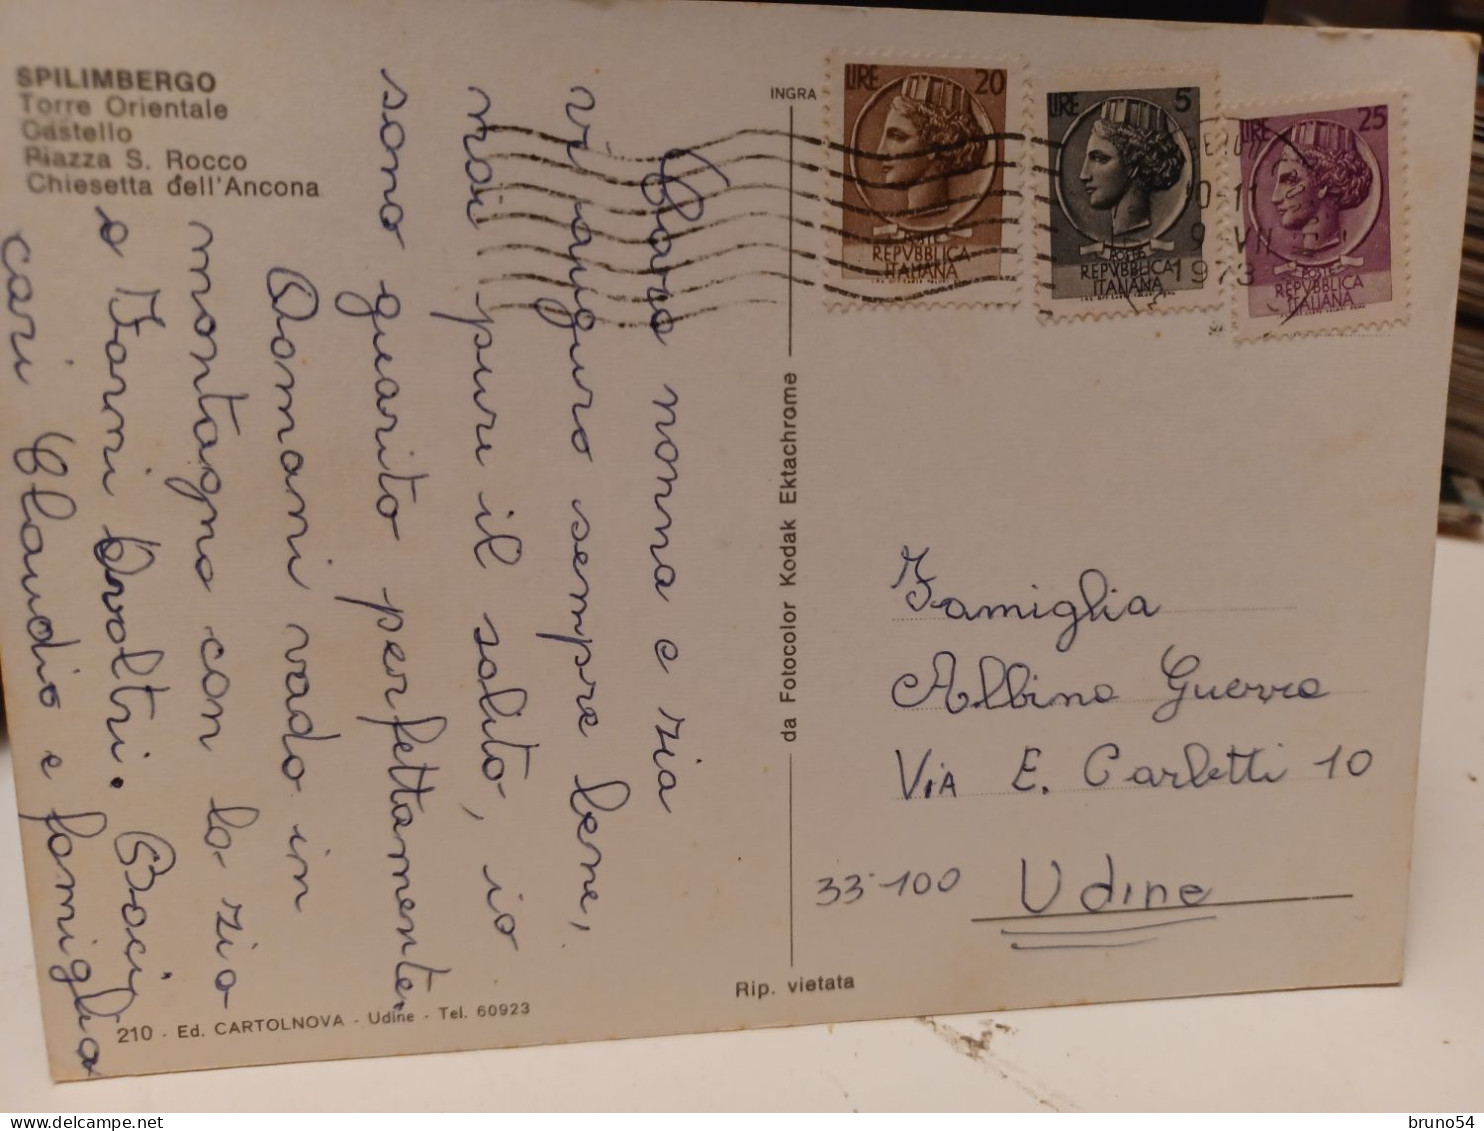 SPILIMBERGO
Torre Orientale
Castello
Piazza S. Rocco
Chiesetta dell'Ancona
Cara nonna e zia
vi auguro sempre bene,
noi pure il solito, io
sono guarito perfettamente.
Domani vado in
montagna con lo zio
a Forni Avoltri. Baci
cari Claudio e famiglia
210 - Ed. CARTOLNOVA - Udine - Tel. 60923
INGRA
da Fotocolor Kodak Ektachrome
Rip. vietata
LIRE 20
POSTE
REPVBBLICA
ITALIANA
LIRE 5
POSTE
REPVBBLICA
ITALIANA
LIRE 25
POSTE
REPVBBLICA
ITALIANA
10-11
9 VII
1973
Famiglia
Albino Guerra
VIA E. Carletti 10
33-100 Udine
bruno54